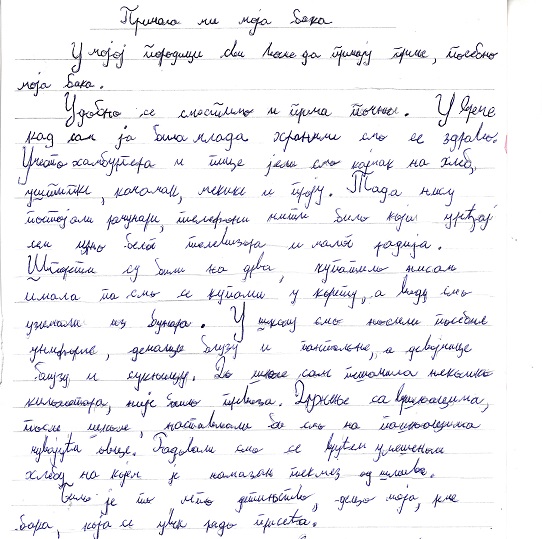 Причала ми моја бака
У мојој породици сви воле да причају приче, посебно
моја бака.
Удобно се сместимо и прича почне. У време
кад сам ја била млада хранили смо се здраво.
Уместо хамбургера и пице јели смо кајмак на хлеб,
уштипке, качамак, мекике и проју. Тада нису
постојали рачунари, телефони нити било који уређај
сем црно белог телевизора и малог радија.
Шпорети су били на дрва, купатило нисам
имала па смо се купали у кориту, а воду смо
узимали из бунара. У школу смо носили посебне
униформе, дечаци блузу и панталоне, а девојчице
блузу и сукњицу. До школе сам пешачила неколико
километара, није било превоза. Дружење са вршњацима,
после школе, настављали би смо на пашњацима
чувајући овце. Радовали смо се врућем умешеном
хлебу на којем је намазан пекмез од шљива.
Било је то лепо детињство, децо моја, рече
бака, која се увек радо присећа.